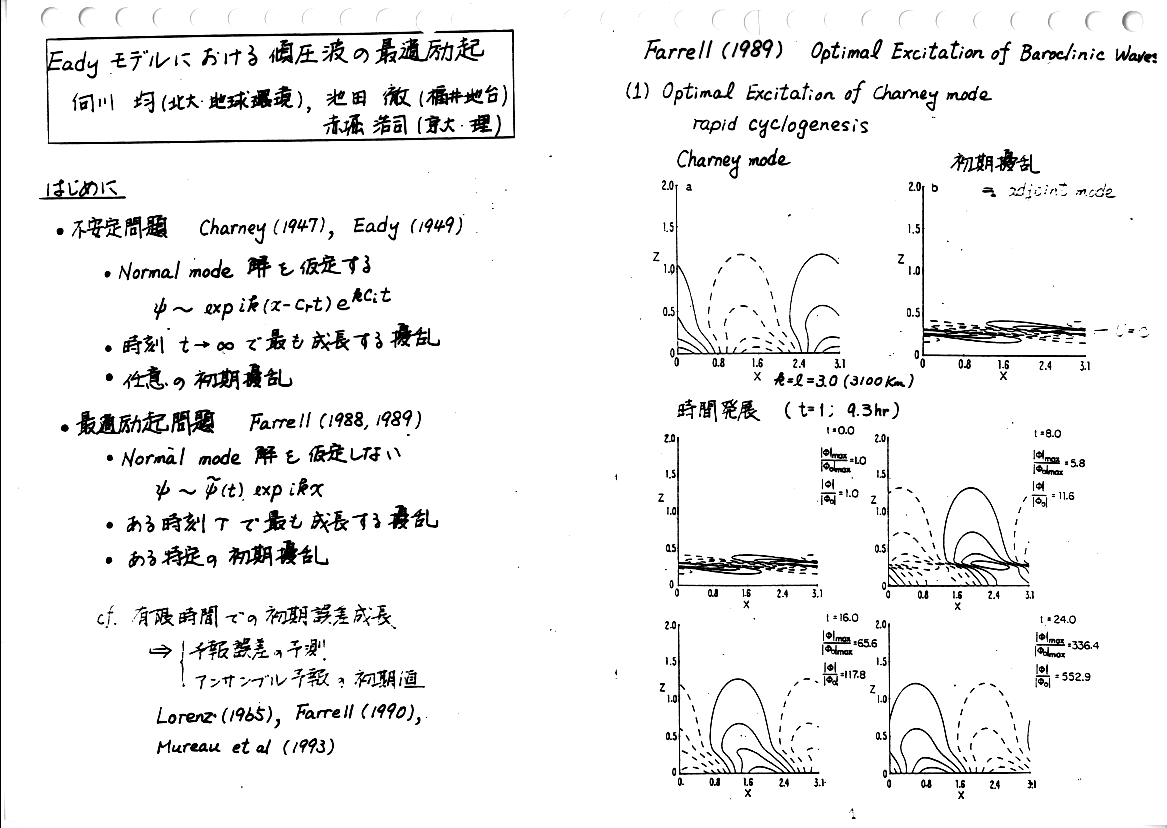 Eady モデルにおける傾圧波の最適励起
向川 均 (北大・地球環境), 池田 徹 (福井地台)
赤堀 浩司 (京大・理)
はじめに
• 不安定問題 Charney (1947), Eady (1949)
• Normal mode 解を仮定する
ψ ~ exp ik(x-Crt) e^kCit
• 時刻 t→∞ で最も成長する擾乱
• 任意の初期擾乱
• 最適励起問題 Farrell (1988, 1989)
• Normal mode 解を仮定しない
ψ ~ ψ̃(t) exp ikx
• ある時刻 τ で最も成長する擾乱
• ある特定の初期擾乱
cf. 有限時間での初期誤差成長
⇒ { 予報誤差の予測
アンサンブル予報の初期値
Lorenz (1965), Farrell (1990),
Mureau et al (1993)
Farrell (1989) Optimal Excitation of Baroclinic Waves
(1) Optimal Excitation of Charney mode
rapid cyclogenesis
Charney mode
2.0 a
1.5
Z
1.0
0.5
0
0 0.8 1.6 2.4 3.1
X
k=l=3.0 (3100Km)
初期擾乱
= adjoint mode
2.0 b
1.5
Z
1.0
0.5
0
0 0.8 1.6 2.4 3.1
X
時間発展 (t=1; 9.3hr)
t=0.0
|Φ|max/|Φ0|max =1.0
|Φ|/|Φ0| =1.0
2.0
1.5
Z
1.0
0.5
0
0 0.8 1.6 2.4 3.1
X
t=8.0
|Φ|max/|Φ0|max =5.8
|Φ|/|Φ0| =11.6
2.0
1.5
Z
1.0
0.5
0
0 0.8 1.6 2.4 3.1
X
t=16.0
|Φ|max/|Φ0|max =65.6
|Φ|/|Φ0| =117.8
2.0
1.5
Z
1.0
0.5
0
0. 0.8 1.6 2.4 3.1
X
t=24.0
|Φ|max/|Φ0|max =336.4
|Φ|/|Φ0| =552.9
2.0
1.5
Z
1.0
0.5
0
0 0.8 1.6 2.4 3.1
X
1